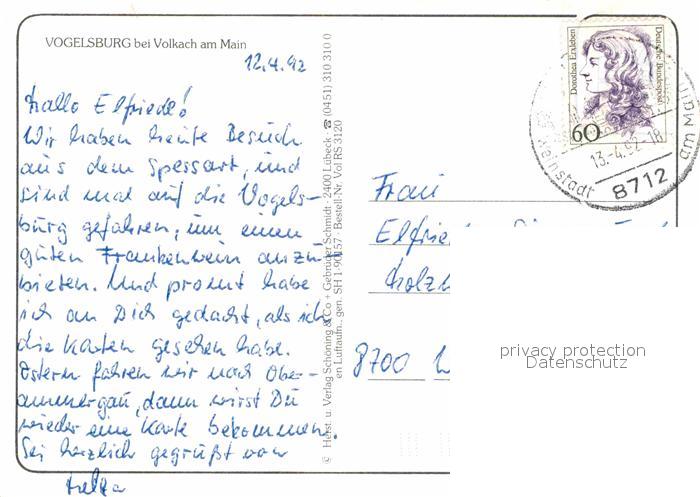 VOGELSBURG bei Volkach am Main
12.4.92
Hallo Elfriede!
Wir haben heute Besuch
aus dem Spessart, und
sind mal auf die Vogels-
burg gefahren, um einen
guten Frankenwein anzu-
bieten. Und promt habe
ich an Dich gedacht, als ich
die Karten gesehen habe.
Ostern fahren wir nach Ober-
ammergau, dann wirst Du
wieder eine Karte bekommen.
Sei herzlich gegrüßt von
Helga
© Herst. u. Verlag Schöning & Co + Gebrüder Schmidt · 2400 Lübeck · ☎ (0451) 310 310 0
en Luftaufn., gen. SH 1-90/157 · Bestell-Nr. Vol RS 3120
Dorothea Erxleben
Deutsche Bundespost
60
13.-4.92-18
8712
am Main
Frau
Elfrie
Holzh
8700 W
privacy protection
Datenschutz